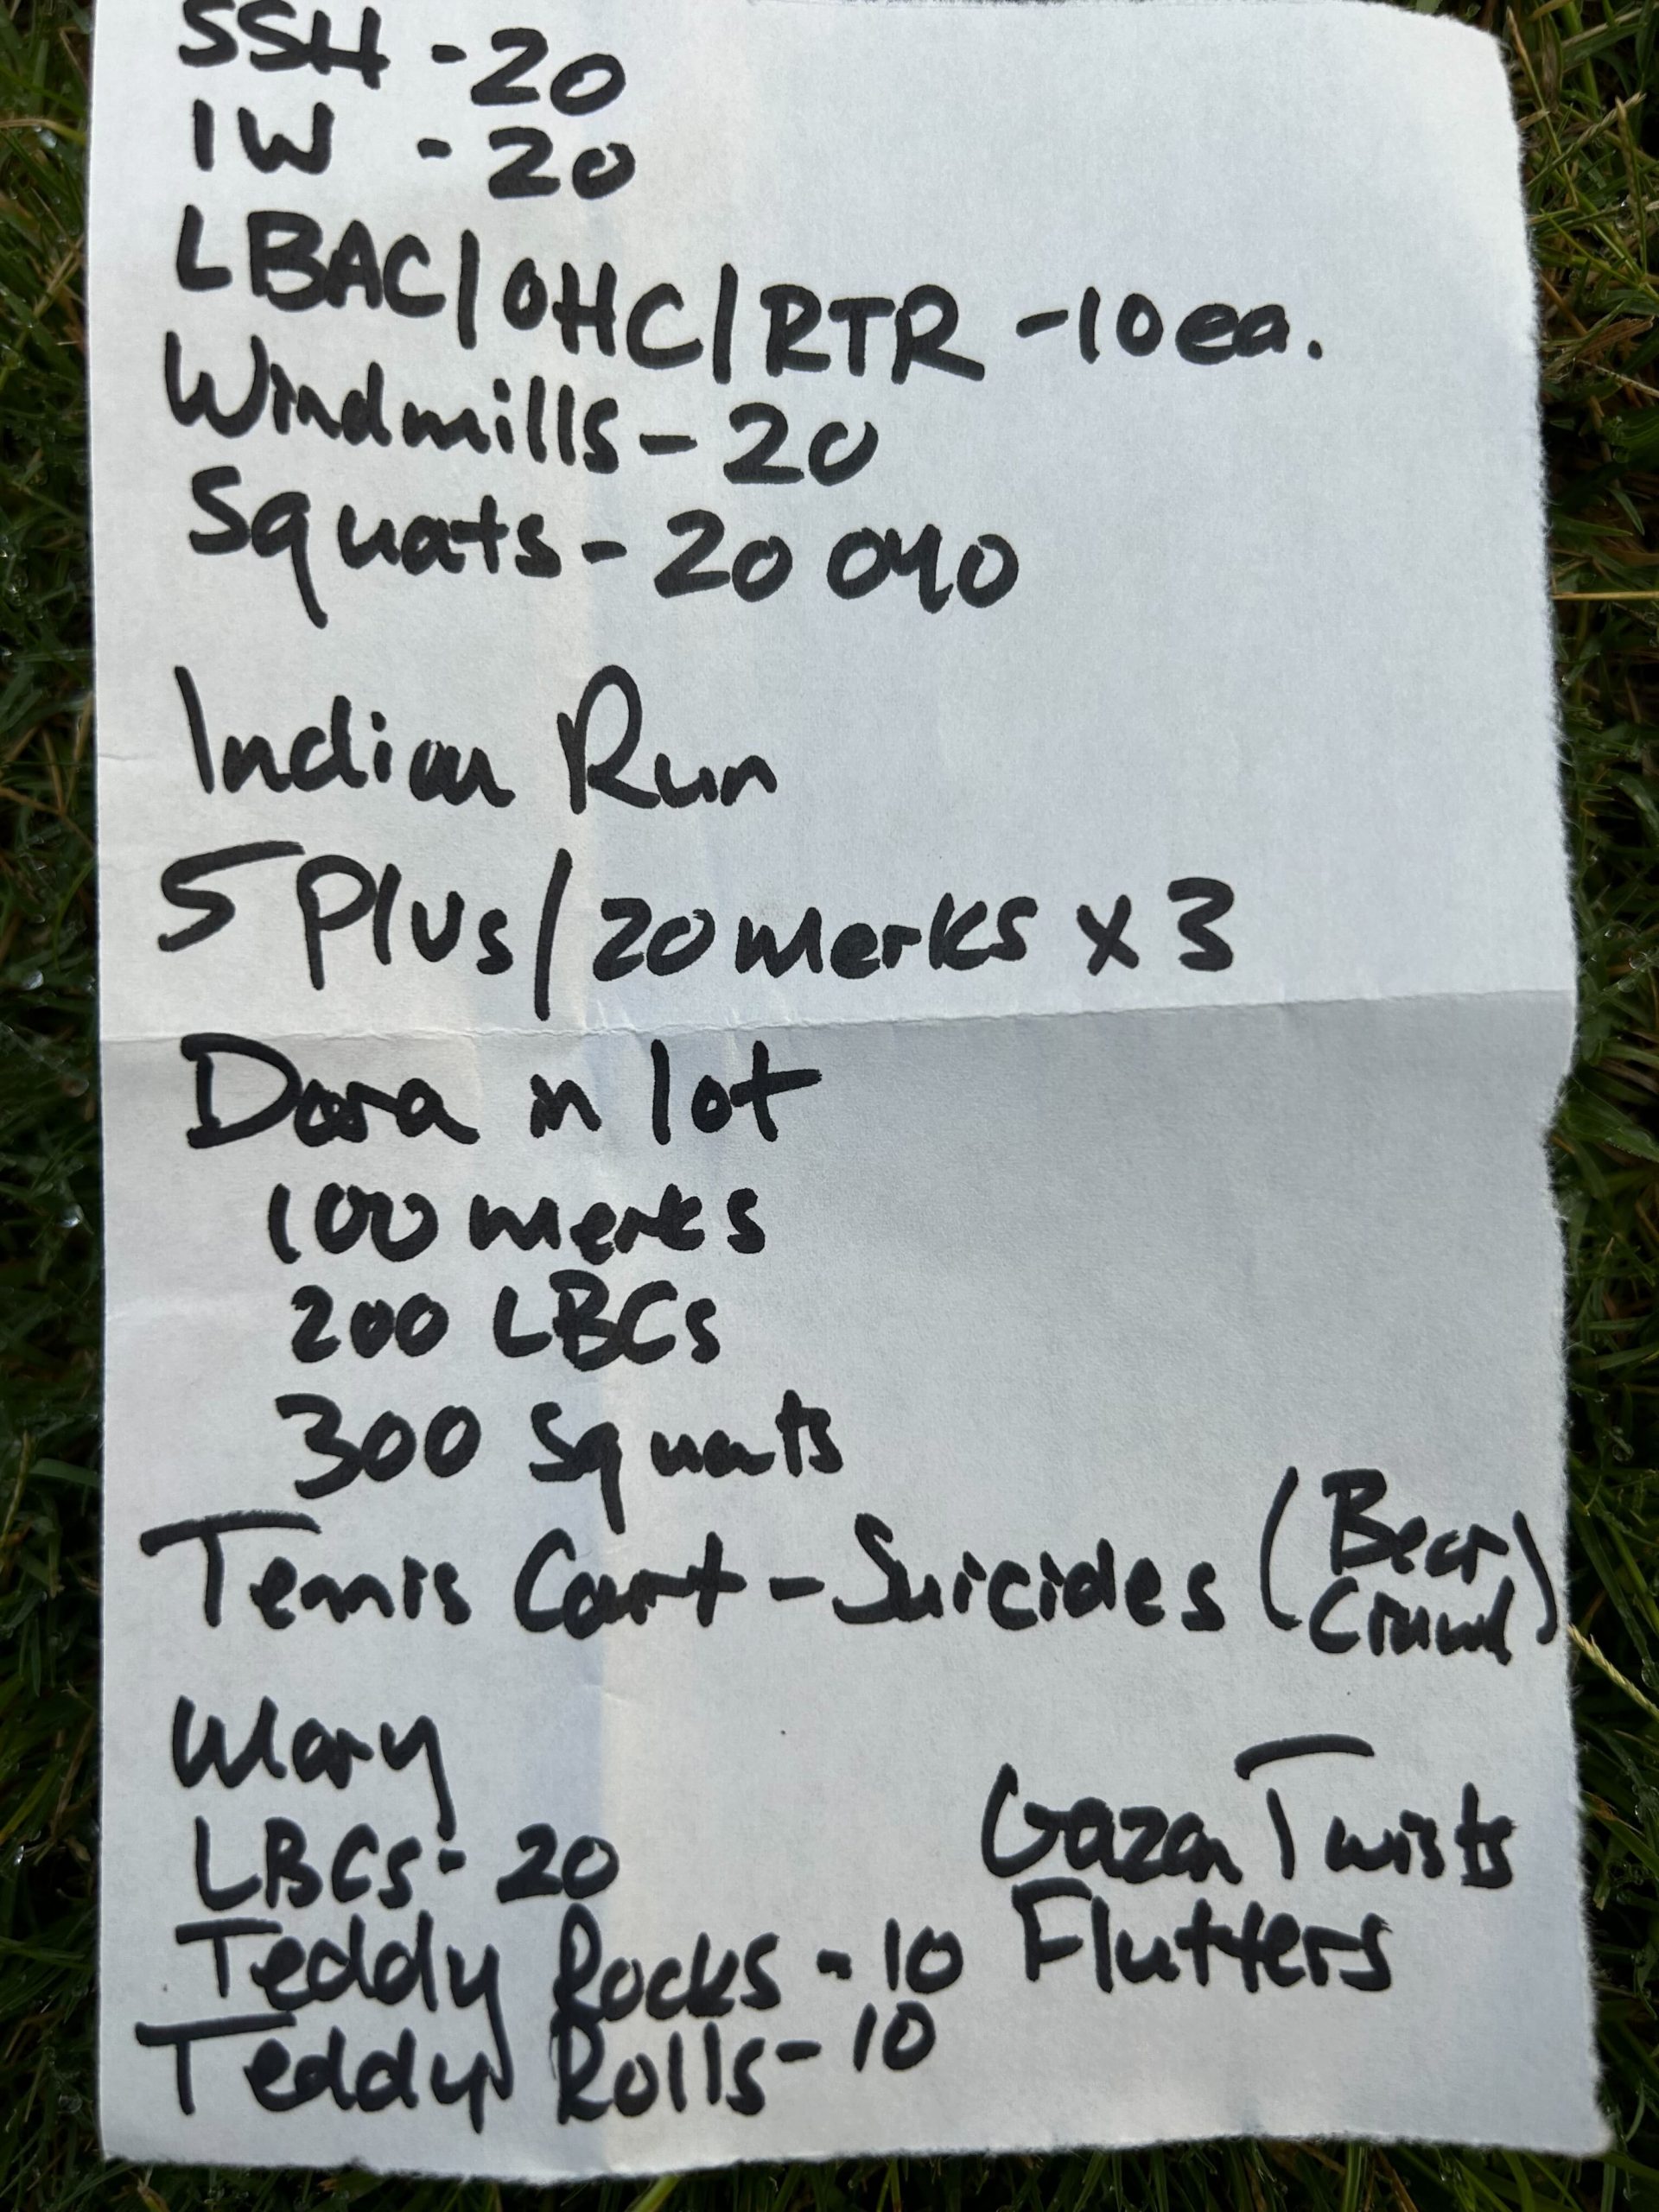 SSH - 20
IW - 20
LBAC/OHC/RTR - 10 ea.
Windmills - 20
Squats - 20 OYO
Indian Run
5 Plus/20 merks x 3
Dora in lot
100 merks
200 LBCs
300 Squats
Tennis Court - Suicides (Bear Crawl)
Mary
LBCs - 20
Teddy Rocks - 10
Teddy Rolls - 10
Gazan Twists
Flutters